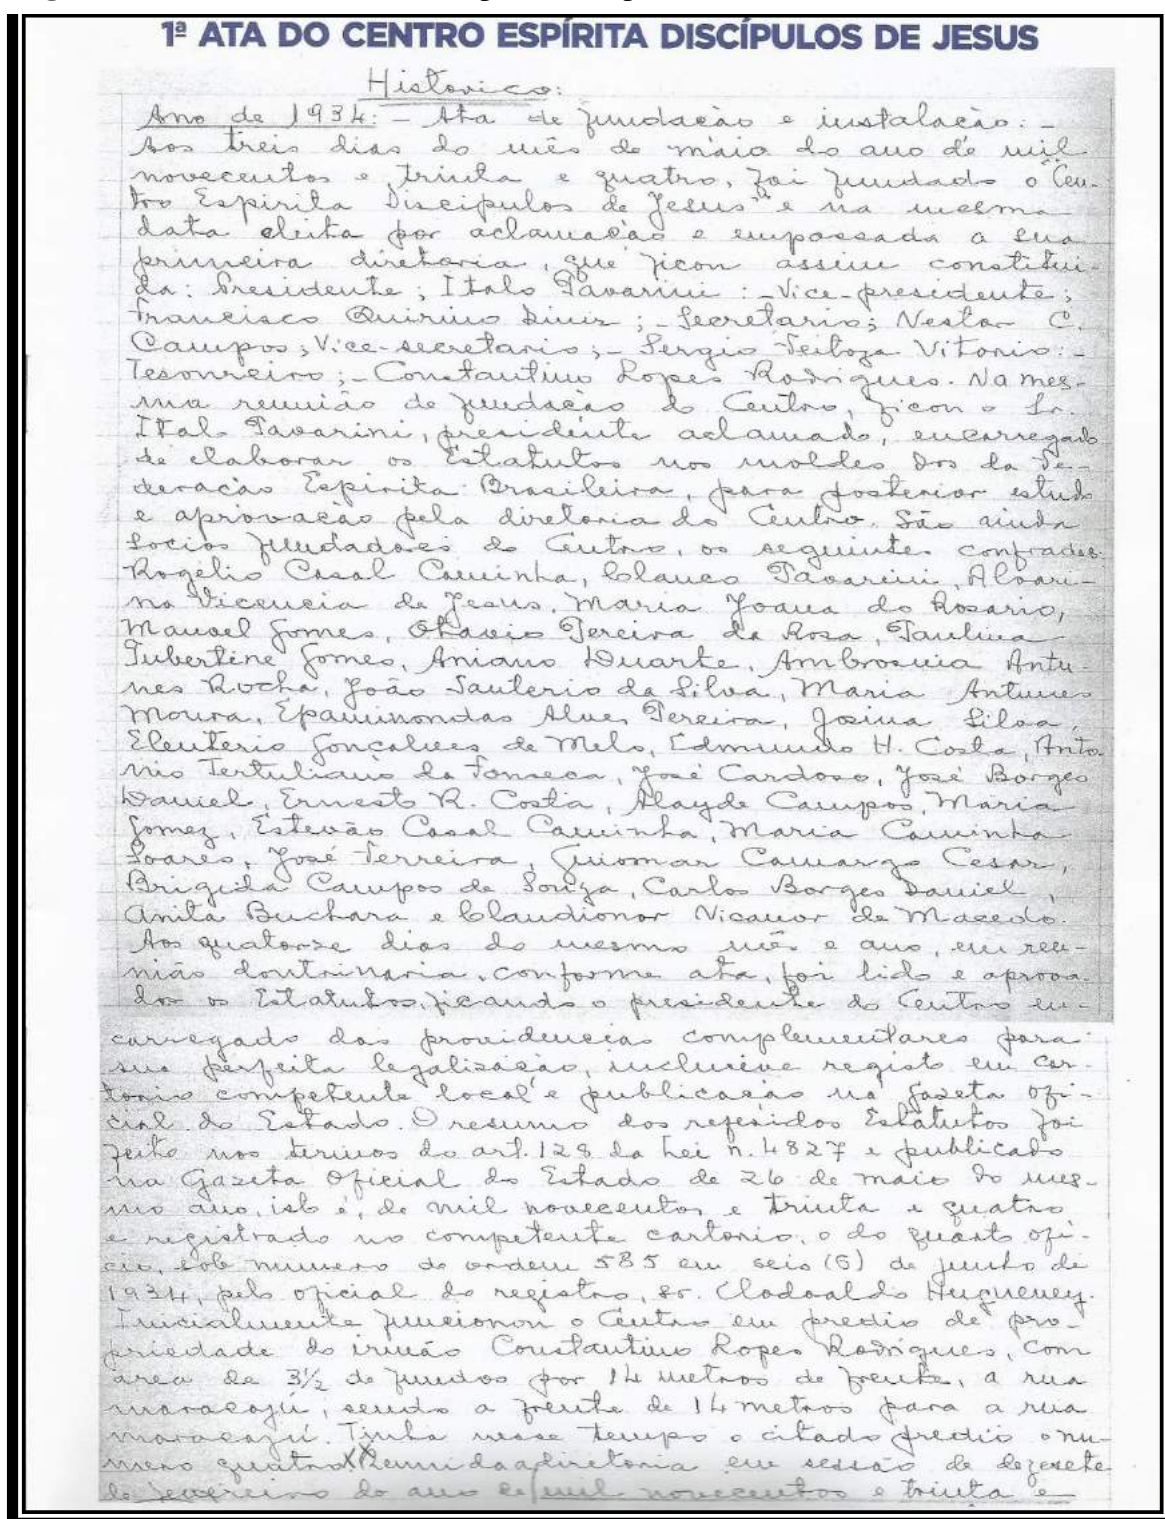 1ª ATA DO CENTRO ESPÍRITA DISCÍPULOS DE JESUS
Historico:
Ano de 1934: - Ata de fundação e instalação: -
Aos treis dias do mês de maio do ano de mil
novecentos e trinta e quatro, foi fundado o "Cen-
tro Espirita Discipulos de Jesus" e na mesma
data eleita por aclamação e empossada a sua
primeira diretoria, que ficou assim constitui-
da: Presidente; Italo Pavarini: - Vice-presidente;
Francisco Quirino Diniz; - Secretario; Nestor C.
Campos; Vice-secretario; - Sergio Feitoza Vitorio: -
Tesoureiro; - Constantino Lopes Rodrigues. Na mes-
ma reunião de fundação do Centro, ficou o Sr.
Italo Pavarini, presidente aclamado, encarregado
de elaborar os Estatutos nos moldes dos da Fe-
deração Espirita Brasileira, para posterior estudo
e aprovação pela diretoria do Centro. São ainda
socios fundadores do Centro, os seguintes confrades:
Rogelio Casal Caminha, Glauco Pavarini, Alvari-
na Vicencia de Jesus, Maria Joana do Rosario,
Manoel Gomes, Otavio Pereira da Rosa, Paulina
Tubertine Gomes, Aniano Duarte, Ambrosina Antu-
nes Rocha, João Santerio da Silva, Maria Antunes
Moura, Epaminondas Alves Pereira, Josina Silva,
Eleuterio Gonçalves de Melo, Edmundo H. Costa, Anto-
nio Tertuliano da Fonseca, José Cardoso, José Borges
Daniel, Ernesto R. Costa, Alayde Campos, Maria
Gomez, Estevão Casal Caminha, Maria Caminha
Soares, José Ferreira, Guiomar Camargo Cesar,
Brigida Campos de Souza, Carlos Borges Daniel,
Anita Buchara e Claudionor Nicanor de Macedo.
Aos quatorze dias do mesmo mês e ano, em reu-
nião doutrinaria, conforme ata, foi lido e aprova-
dos os Estatutos, ficando o presidente do Centro en-
carregado das providencias complementares para
sua perfeita legalização, inclusive registo em car-
torio competente local e publicação na Gazeta Ofi-
cial do Estado. O resumo dos referidos Estatutos foi
feito nos termos do art. 128 da Lei n. 4827 e publicado
na Gazeta Oficial do Estado de 26 de maio do mes-
mo ano, isto é, de mil novecentos e trinta e quatro
e registrado no competente cartorio, o do quarto ofi-
cio, sob numero de ordem 585 em seis (6) de junho de
1934, pelo oficial do registro, sr. Clodoaldo Hugueney.
Inicialmente funcionou o Centro em predio de pro-
priedade do irmão Constantino Lopes Rodrigues, com
area de 3½ de fundos por 14 metros de frente, a rua
maracajú, sendo a frente de 14 metros para a rua
maracajú. Tinha nesse tempo o citado predio o nu-
mero quatro. XX Reunida a diretoria em sessão de dezesete
de fevereiro do ano de mil novecentos e trinta e